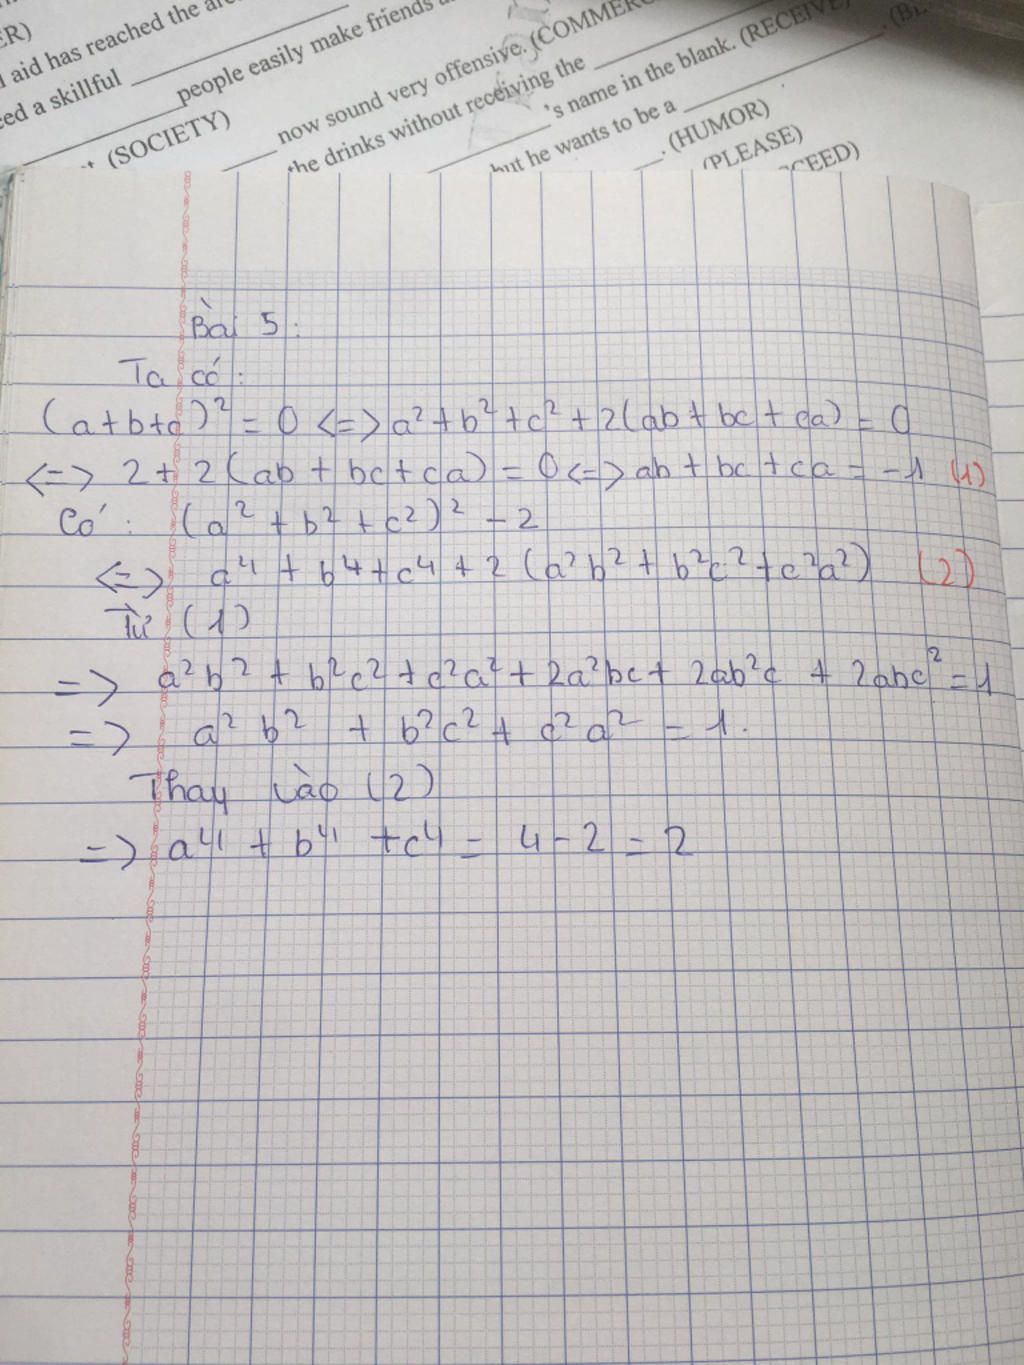 ER)
aid has reached the
eed a skillful ____________
____________people easily make friends
(SOCIETY)
____ now sound very offensive. (COMMER
the drinks without receiving the ____________
____________'s name in the blank. (RECEIVE)
but he wants to be a ____________.
____. (HUMOR)
(PLEASE)
CEED)
Bài 5:
Ta có:
(a+b+c)² = 0 <=> a² + b² + c² + 2(ab + bc + ca) = 0
<=> 2 + 2(ab + bc + ca) = 0 <=> ab + bc + ca = -1 (1)
Có: (a² + b² + c²)² - 2
<=> a⁴ + b⁴ + c⁴ + 2(a²b² + b²c² + c²a²) (2)
Từ (1)
=> a²b² + b²c² + c²a² + 2a²bc + 2ab²c + 2abc² = 1
=> a²b² + b²c² + c²a² = 1.
Thay vào (2)
=> a⁴ + b⁴ + c⁴ = 4 - 2 = 2